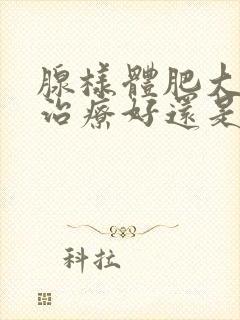 腺樣體肥大
治療好還是
科拉